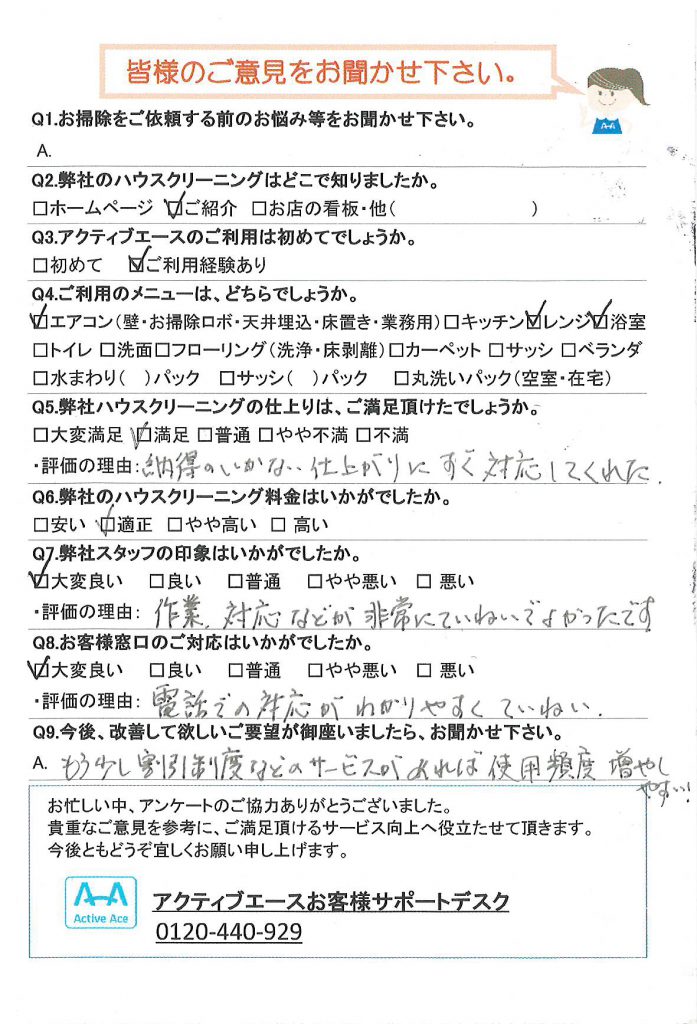 皆様のご意見をお聞かせ下さい。
Q1.お掃除をご依頼する前のお悩み等をお聞かせ下さい。
A.
Q2.弊社のハウスクリーニングはどこで知りましたか。
□ホームページ ☑ご紹介 □お店の看板・他( )
Q3.アクティブエースのご利用は初めてでしょうか。
□初めて ☑ご利用経験あり
Q4.ご利用のメニューは、どちらでしょうか。
☑エアコン(壁・お掃除ロボ・天井埋込・床置き・業務用)□キッチン☑レンジ☑浴室
□トイレ □洗面□フローリング(洗浄・床剥離)□カーペット □サッシ □ベランダ
□水まわり( )パック □サッシ( )パック □丸洗いパック(空室・在宅)
Q5.弊社ハウスクリーニングの仕上りは、ご満足頂けたでしょうか。
□大変満足 ☑満足 □普通 □やや不満 □不満
・評価の理由:納得のいかない仕上がりにすぐ対応してくれた.
Q6.弊社のハウスクリーニング料金はいかがでしたか。
□安い ☑適正 □やや高い □高い
Q7.弊社スタッフの印象はいかがでしたか。
☑大変良い □良い □普通 □やや悪い □悪い
・評価の理由: 作業、対応などが非常にていねいでよかったです
Q8.お客様窓口のご対応はいかがでしたか。
☑大変良い □良い □普通 □やや悪い □悪い
・評価の理由: 電話での対応がわかりやすくていねい.
Q9.今後、改善して欲しいご要望が御座いましたら、お聞かせ下さい。
A. もう少し割引制度などのサービスがあれば使用頻度増やし
やすい!
お忙しい中、アンケートのご協力ありがとうございました。
貴重なご意見を参考に、ご満足頂けるサービス向上へ役立たせて頂きます。
今後ともどうぞ宜しくお願い申し上げます。
Active Ace
アクティブエースお客様サポートデスク
0120-440-929